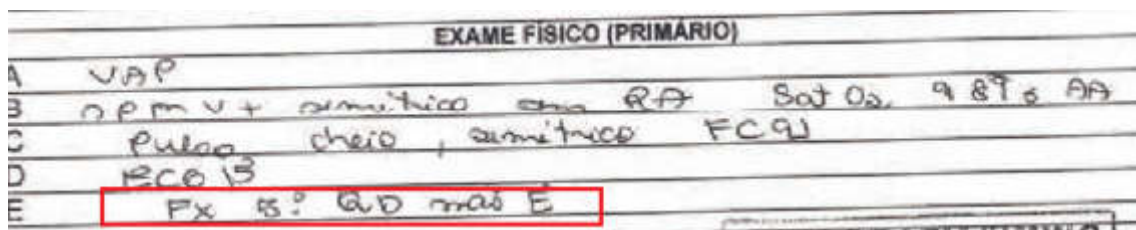 EXAME FÍSICO (PRIMÁRIO)
A VAP
B MV+ simétrico RA Sat O2 98% AA
C Pulso cheio, simétrico FC 91
D ECG 15
E Fx 5º QD mão E